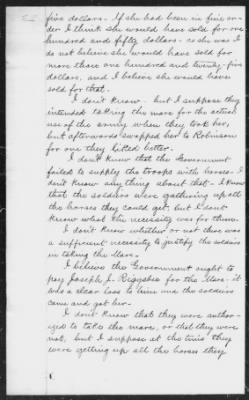 five dollars. If she had been in fine or-
der I think she would have sold for one
hundred and fifty dollars - as she was I
do not believe she would have sold for
more than one hundred and twenty-five
dollars, and I believe she would have
sold for that.
I don't know - but I suppose they
intended taking the mare for the actual
use of the army when they took her,
but afterwards swapped her to Robinson
for one they liked better.
I don't know that the Government
failed to supply the troops with horses - I
don't know anything about that - I know
that the soldiers were gathering up all
the horses they could get, but I don't
know what the necessity was for them.
I don't know whether or not there was
a sufficient necessity to justify the soldiers
in taking the Mare.
I believe the Government ought to
pay Joseph J. for the Mare - it
was a clear loss to him and the soldiers
came and got her.
I don't know that they were author-
ized to take the mare, or that they were
not, but I suppose at the time they
were getting up all the horses they